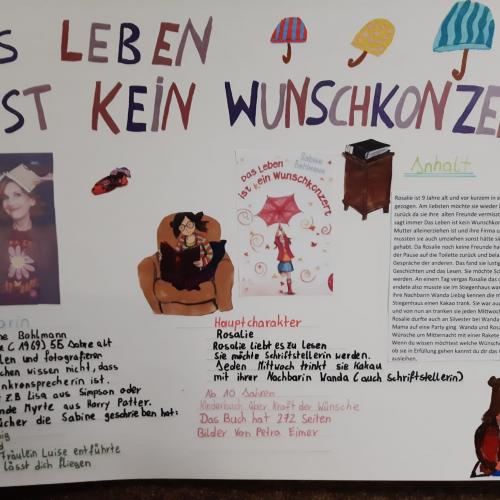 S LEBEN
ST KEIN WUNSCHKONZE
Sabine Bohlmann
Das Leben
ist kein Wunschkonzert
Anhalt
Rosalie ist 9 Jahre alt und vor kurzem in e
gezogen. Am liebsten möchte sie wieder
zurück da sie ihre alten Freunde vermis
sagt immer Das Leben ist kein Wunschkon
Mutter alleinerziehend ist und ihre Firma u
mussten sie auch umziehen sonst hätte si
gehabt. Da Rosalie noch keine Freunde ha
der Pause auf die Toilette zurück und bela
Gespräche der anderen. Das fand sie lustig
Geschichten und das Lesen. Sie möchte Sch
werden. An einem Tag vergas Rosalie das
endete also musste sie im Stiegenhaus war
ihre Nachbarin Wanda Liebig kennen die
Stiegenhaus einen Kakao trank. Sie war au
und von nun an tranken sie jeden Mittwoch
Rosalie durfte auch an Silvester bei Wanda
Mama auf eine Party ging. Wanda und Rosa
Wünsche um Mitternacht mit einer Rakete
Wenn du wissen möchtest welche Wünsche
ob sie in Erfüllung gehen kannst du dir das
ausleihen.
arin
ne Bohlmann
e (1969) 55 Jahre alt
len und fotografieren
chen wissen nicht, dass
nkronsprecherin ist.
z.B Lisa aus Simpson oder
nde Myrte aus Harry Potter.
ücher die Sabine geschrieben hat:
Fräulein Luise entführte
lässt dich fliegen
Hauptcharakter
Rosalie
Rosalie liebt es zu lesen
Sie möchte Schriftstellerin werden.
Jeden Mittwoch trinkt sie Kakau
mit ihrer Nachbarin Wanda (auch Schriftstellerin)
Ab 10 Jahren
Kinderbuch über Kraft der Wünsche
Das Buch hat 272 Seiten
Bilder von Petra Eimer